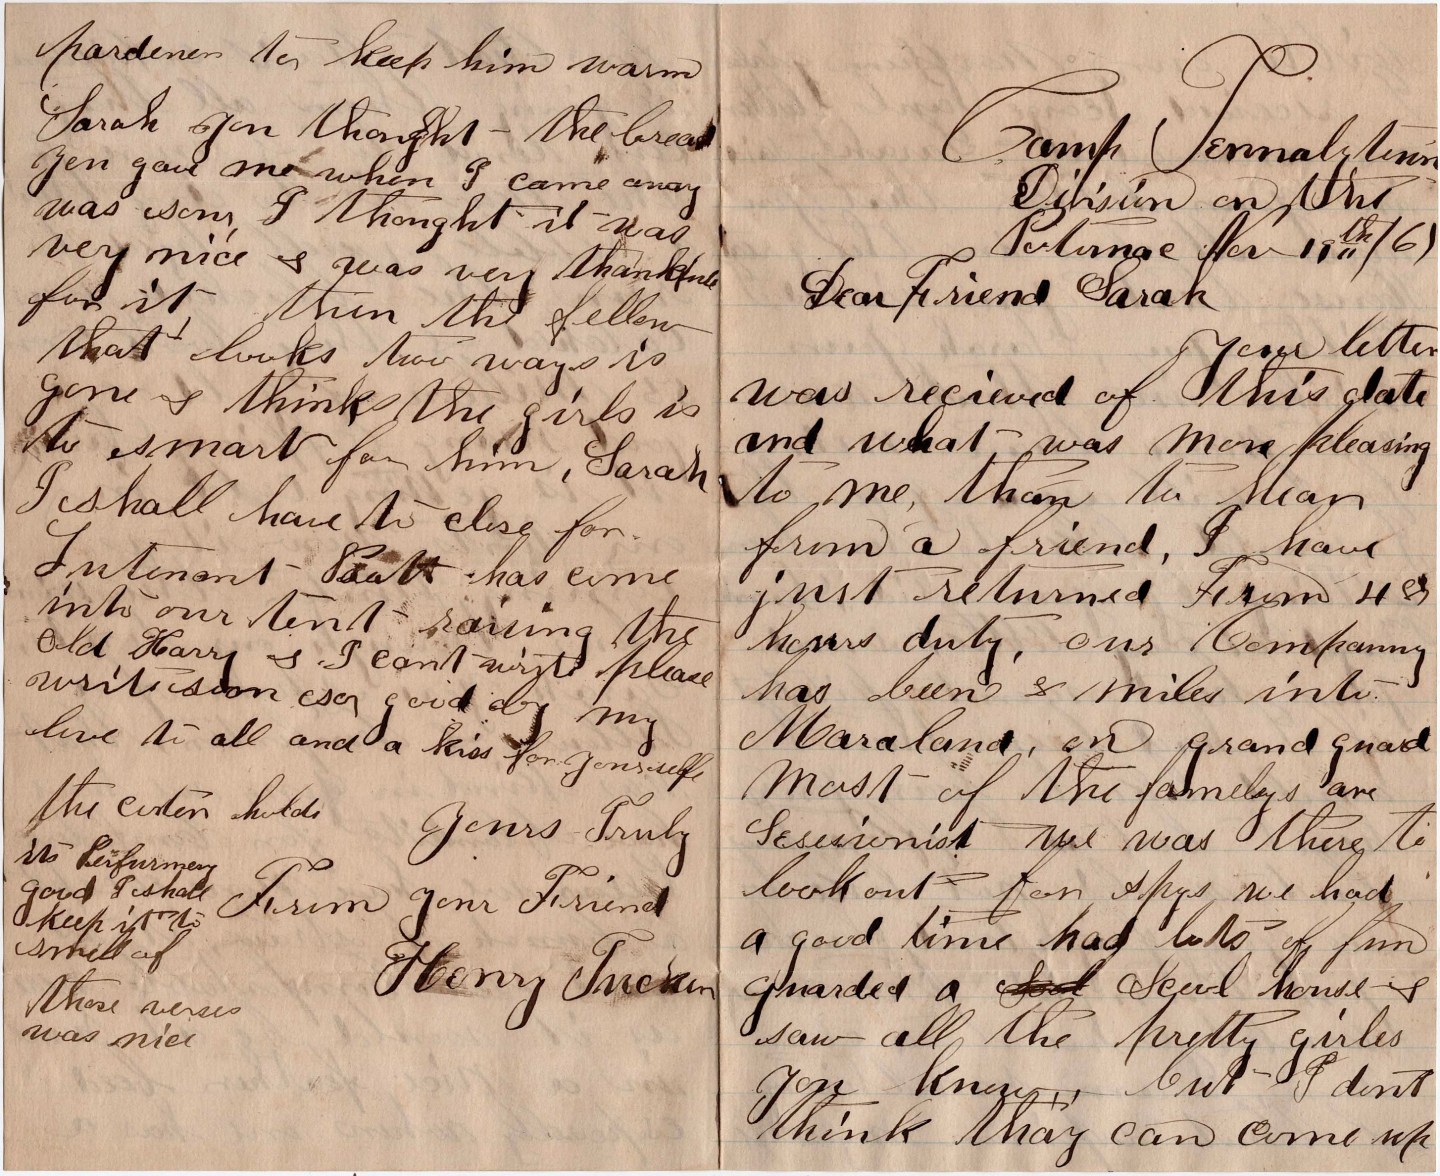 Camp Tennalytown
Division on the
Potomac Nov 18th /61
Dear Friend Sarah
Your letter
was recieved of this date
and what was more pleasing
to me, than to hear
from a friend, I have
just returned From 48
hours duty, our Companny
has been 8 miles into
Maraland, on grand guard
Most of the familys are
Sesesionist we was there to
look out for spys we had
a good time had lots of fun
guarded a Scool house &
saw all the pretty girles
you know, but I dont
think thay can come up
pardener to keep him warm
Sarah you thought the bread
you gave me when I came away
was sour, I thought it was
very nice & was very thankfule
for it, then the fellow
that looks two ways is
gone & thinks the girls is
to smart for him, Sarah
I shall have to close for
Lutenant Pratt has come
into our tent raising the
Old Harry & I cant write please
write soon so good by my
love to all and a kiss for yourselfe
Yours Truly
From your Friend
Henry Tucker
the coten holds
its Perfurmery
good I shall
keep it to
smell of
those verses
was nice